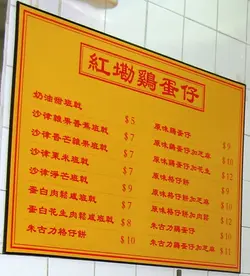 紅墈鷄蛋仔
奶油甜班戟 $5
沙律雜果香蕉班戟 $7
沙律香芒雜果班戟 $7
沙律粟米班戟 $7
沙律淨芒班戟 $9
蛋白肉鬆咸班戟 $7
蛋白花生肉鬆咸班戟 $8
朱古力格仔餅 $10
原味鷄蛋仔 $9
原味鷄蛋仔加芝麻 $10
原味鷄蛋仔加花生 $12
原味格仔餅 $9
原味格仔餅加芝麻 $10
原味格仔餅加肉鬆 $12
朱古力鷄蛋仔 $10
朱古力鷄蛋仔加芝麻 $11